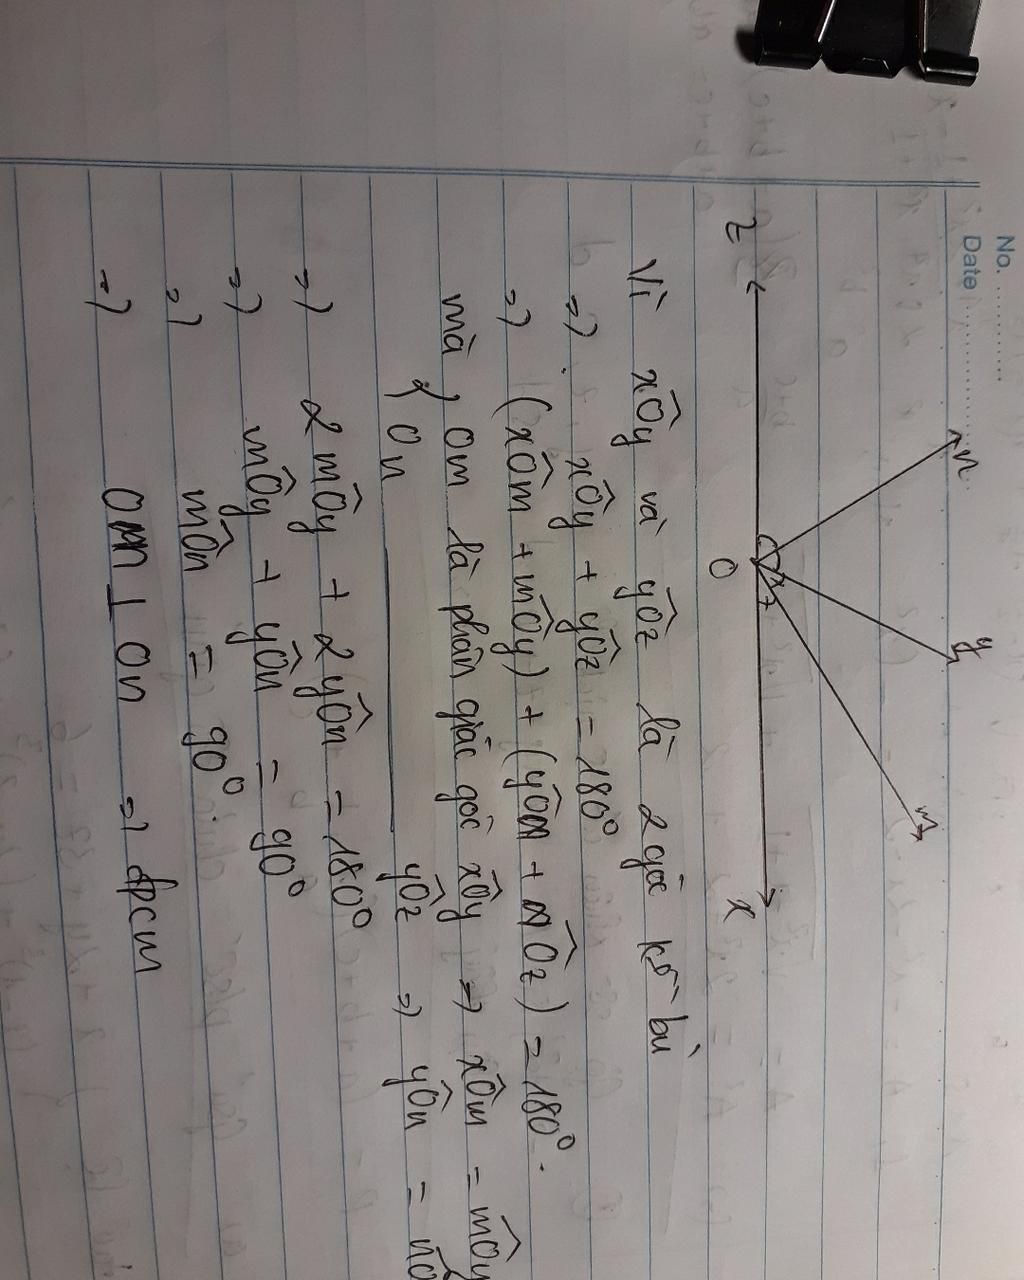 No. ............
Date ............
n
y
m
z
O
x
Vì xÔy và yÔz là 2 góc kề bù
=> xÔy + yÔz = 180°
=> (xÔm + mÔy) + (yÔn + nÔz) = 180°.
mà { Om là phân giác góc xÔy => xÔm = mÔy
On ——— yÔz => yÔn = nÔ
=> 2 mÔy + 2 yÔn = 180°
=> mÔy + yÔn = 90°
=> mÔn = 90°
=> Om ⊥ On => đpcm